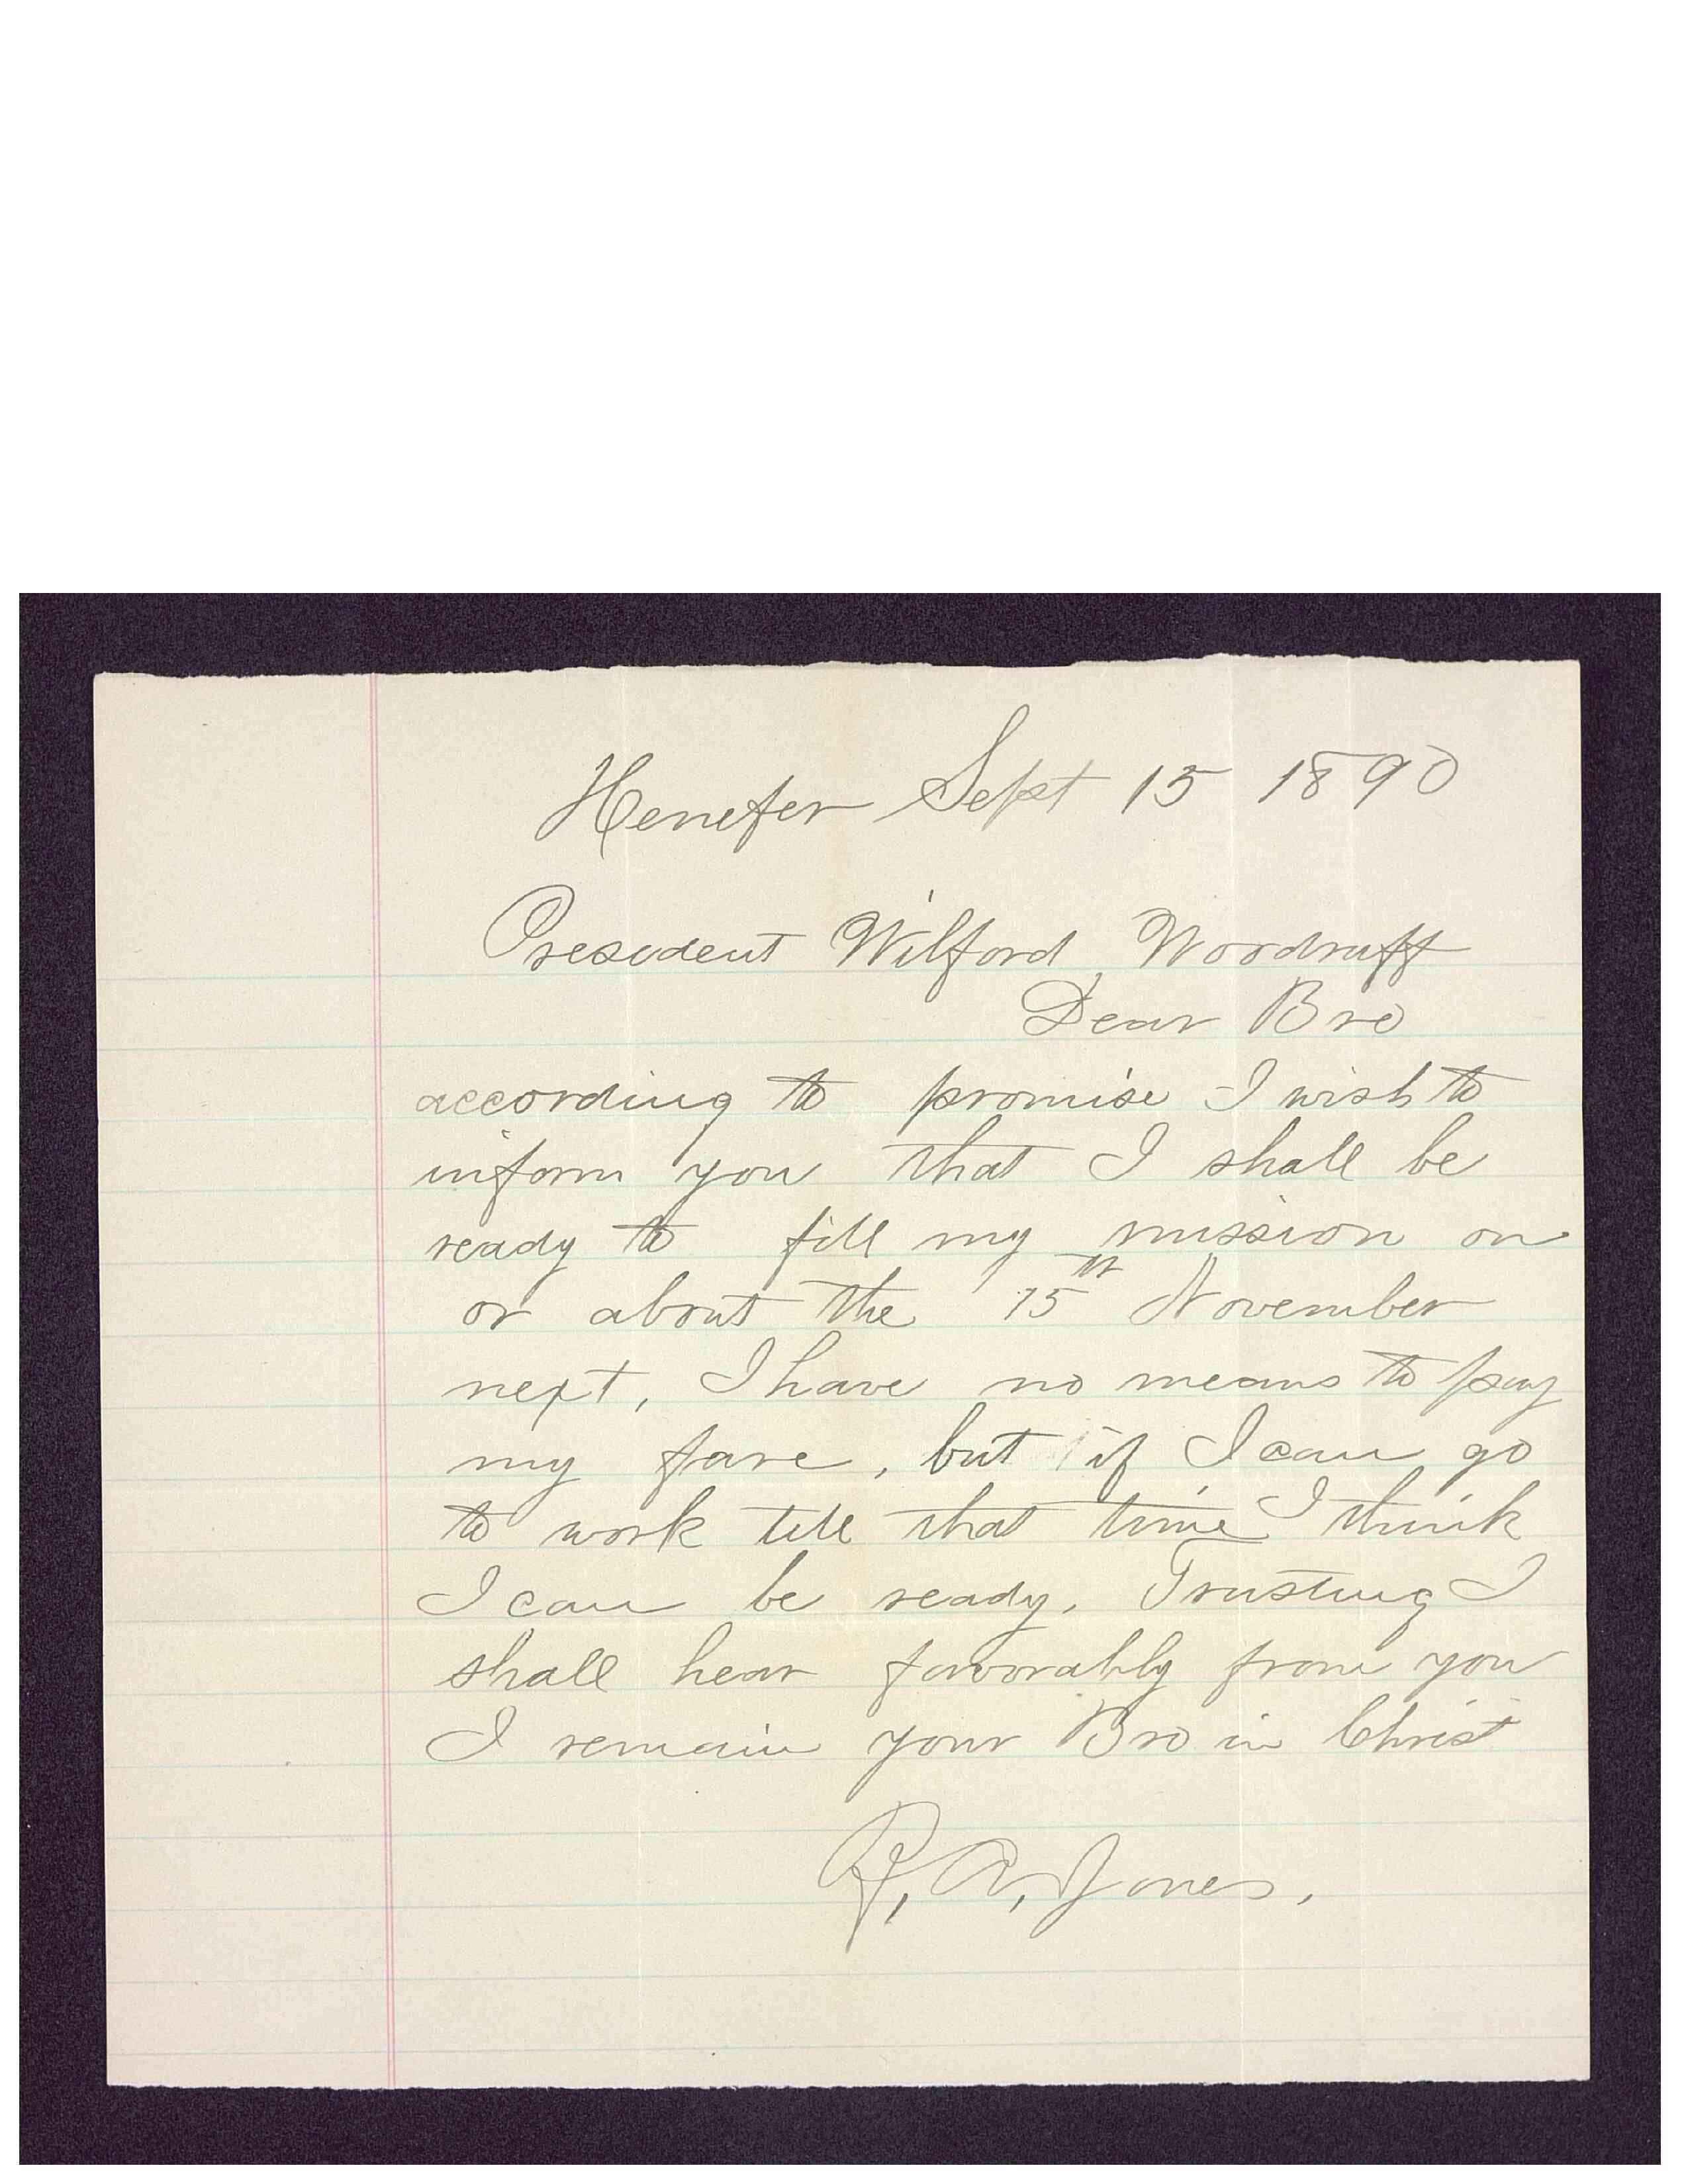 Henefer Sept 15 1890
Presedent Wilford Woodruff
Dear Bro
according to promise I wish to
inform you that I shall be
ready to fill my mission on
or about the 15th November
next, I have no means to pay
my fare, but if I can go
to work till that time I think
I can be ready, Trusting I
shall hear favorably from you
I remain your Bro in Christ
R, A, Jones,